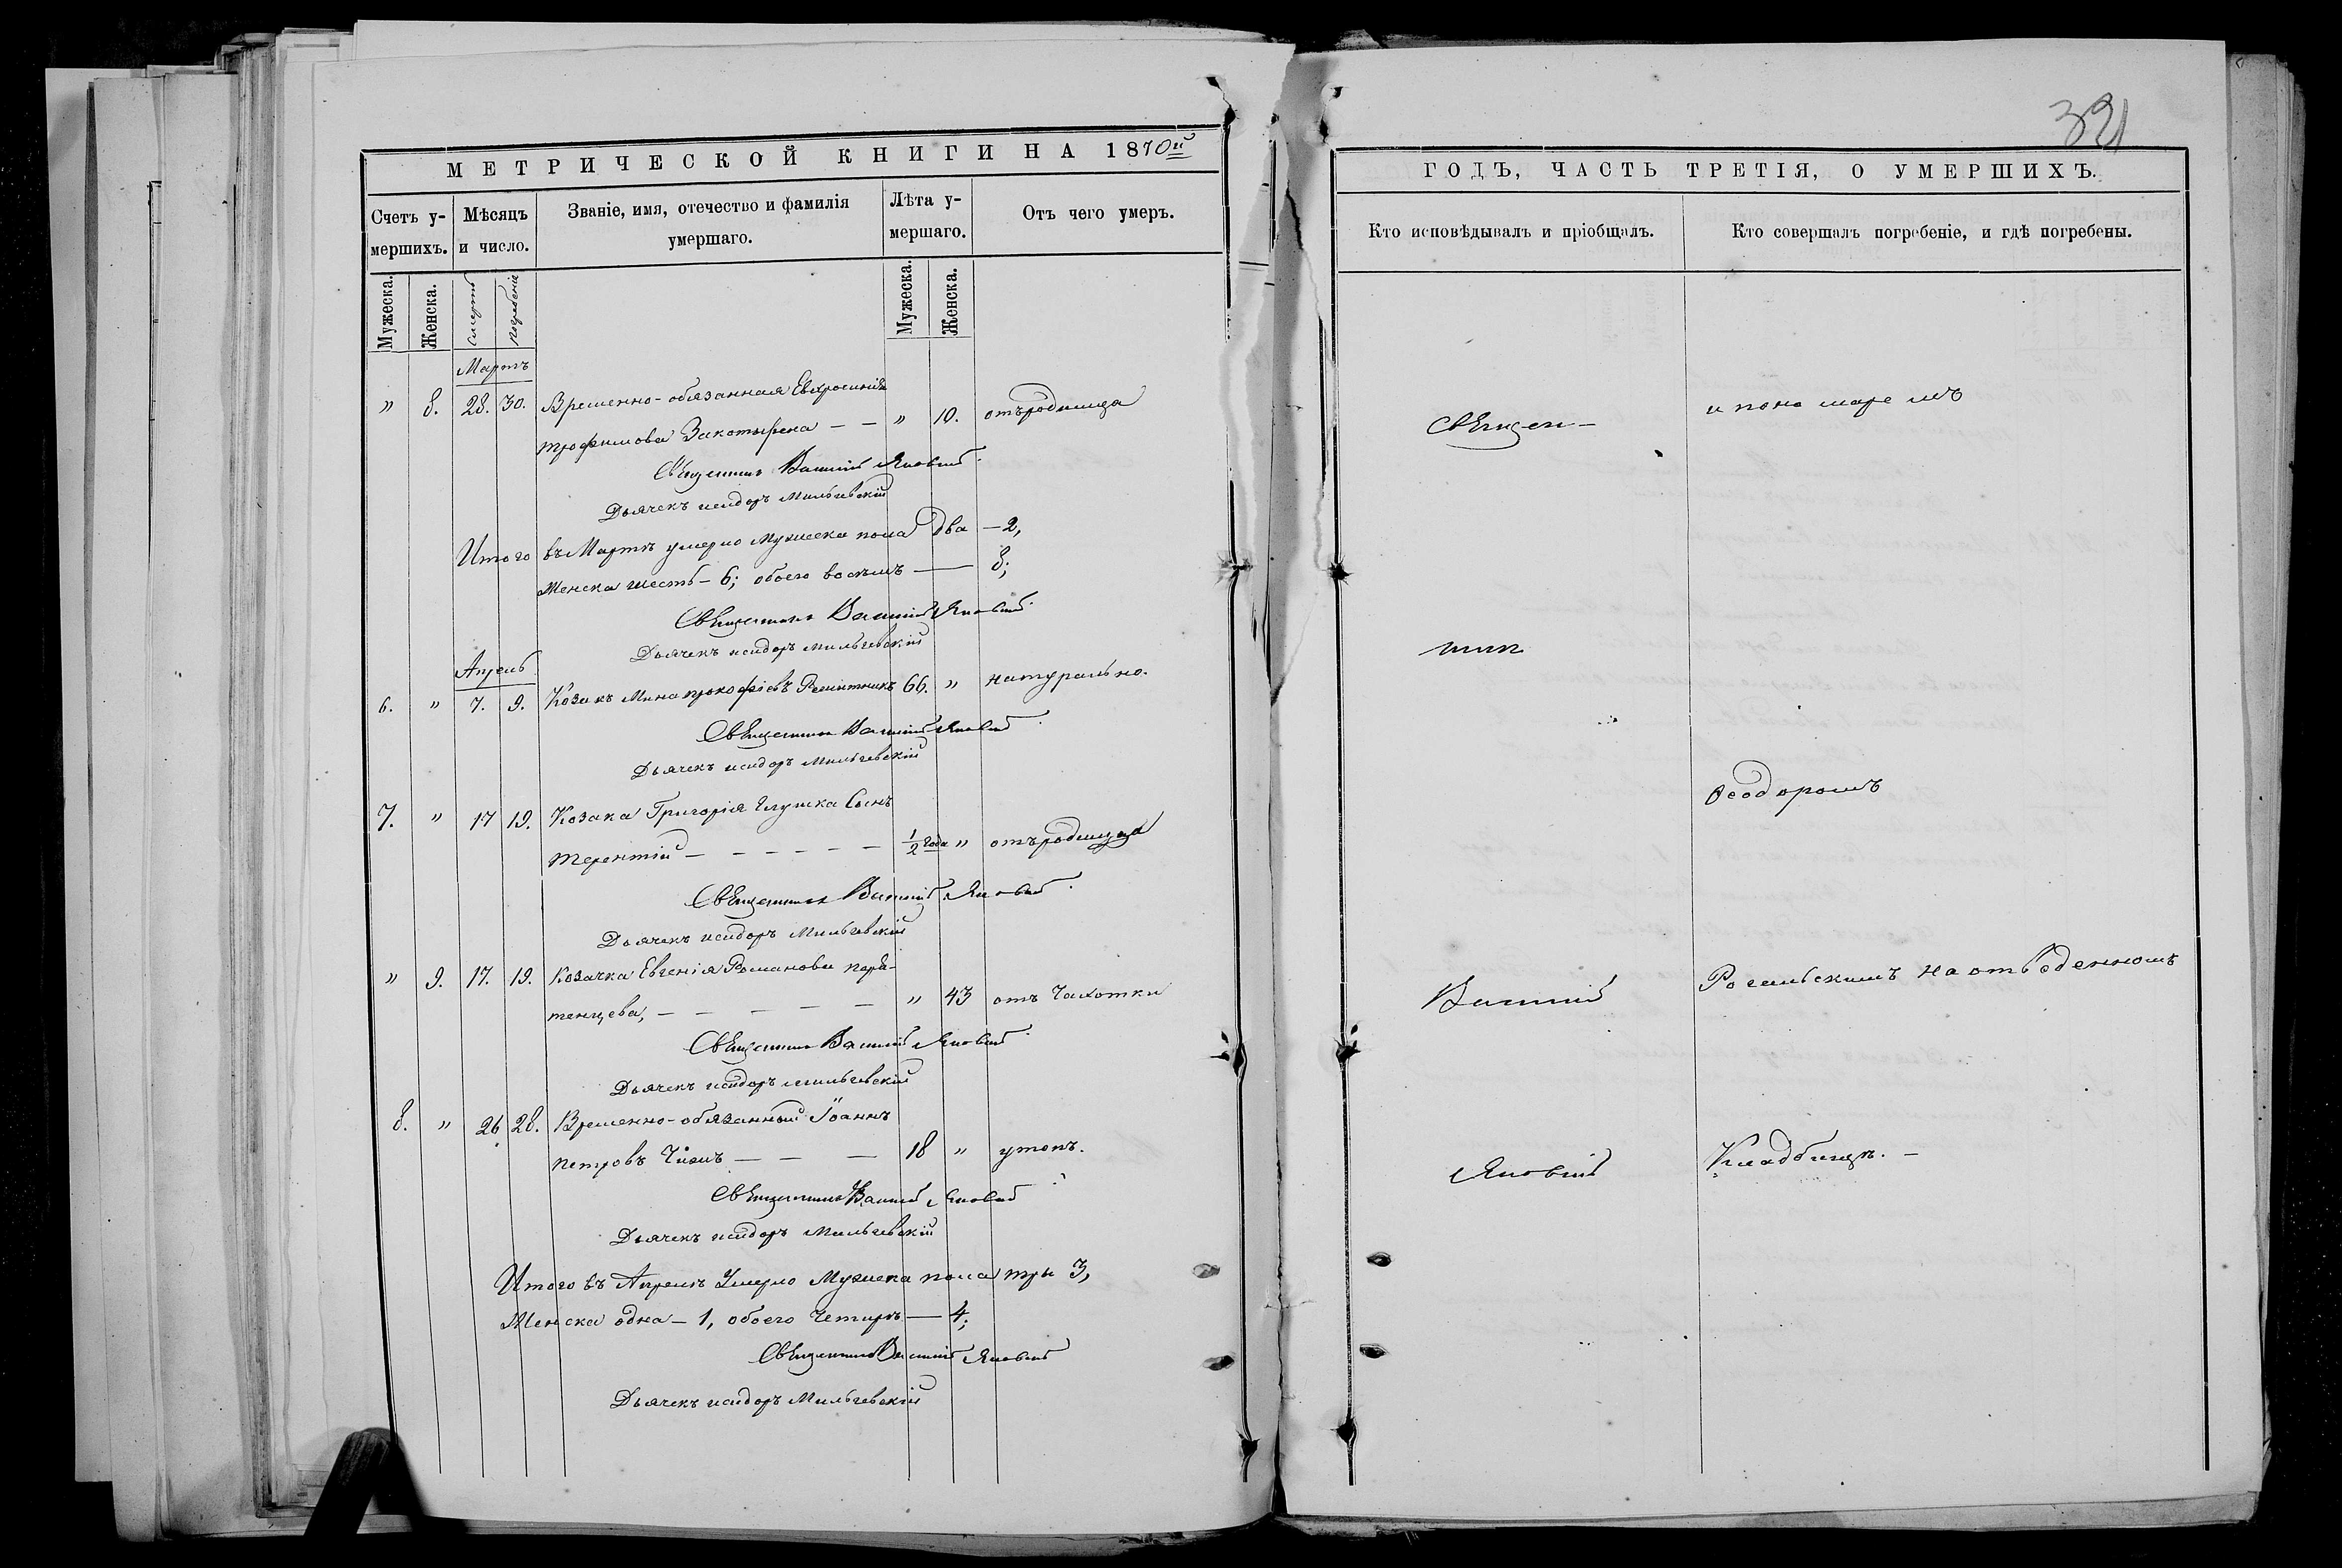 МЕТРИЧЕСКОЙ КНИГИ НА 1870й
Счетъ у-
мершихъ.
Мѣсяцъ
и число.
Званіе, имя, отечество и фамилія
умершаго.
Лѣта у-
мершаго.
Отъ чего умеръ.
Мужеска.
Женска.
Смерти
Погребенія
Мужеска.
Женска.
Мартъ
" 8. 28. 30. Временно-обязанная Евфросинія
трофимова — — " 10. отъ родимца
Священникъ Василій Яновскій.
Дьячекъ исидоръ Мильгевскій
Итого въ Мартѣ умерло Мужеска пола два — 2,
Женска шесть – 6; обоего восемъ — 8;
Священникъ Василій Яновскій.
Дьячекъ исидоръ мильгевскій
Апрель
6. " 7. 9. Козакъ Мина прокофіевъ 66. " натурально.
Священникъ Василій Яновскій.
Дьячекъ исидоръ Мильгевскій
7. " 17 19. Козака Григорія Глушка Сынъ
терентій — — — — — 1/2 года " отъ родимца
Священникъ Василій Яновскій.
Дьячекъ исидоръ Мильгевскій
" 9. 17. 19. Козачка Евгенія Романова
— — — — — " 43 отъ Чахотки
Священникъ Василій Яновскій.
Дьячекъ исидоръ мильгевскій
8. " 26 28. Временно-обязанный Іоаннъ
петровъ — — — 18 " утопъ.
Священникъ Василій Яновскій
Дьячекъ исидоръ Мильгевскій
Итого въ Апрелѣ Умерло Мужеска пола три 3,
Женска одна – 1, обоего Четыръ — 4;
Священникъ Василій Яновскій
Дьячекъ исидоръ Мильгевскій
321
ГОДЪ, ЧАСТЬ ТРЕТІЯ, О УМЕРШИХЪ.
Кто исповѣдывалъ и пріобщалъ.
Кто совершалъ погребеніе, и гдѣ погребены.
Священ-
и понамаремъ
никъ
Феодоромъ
Василій
на отведенномъ
Яновскій
Кладбищѣ. –